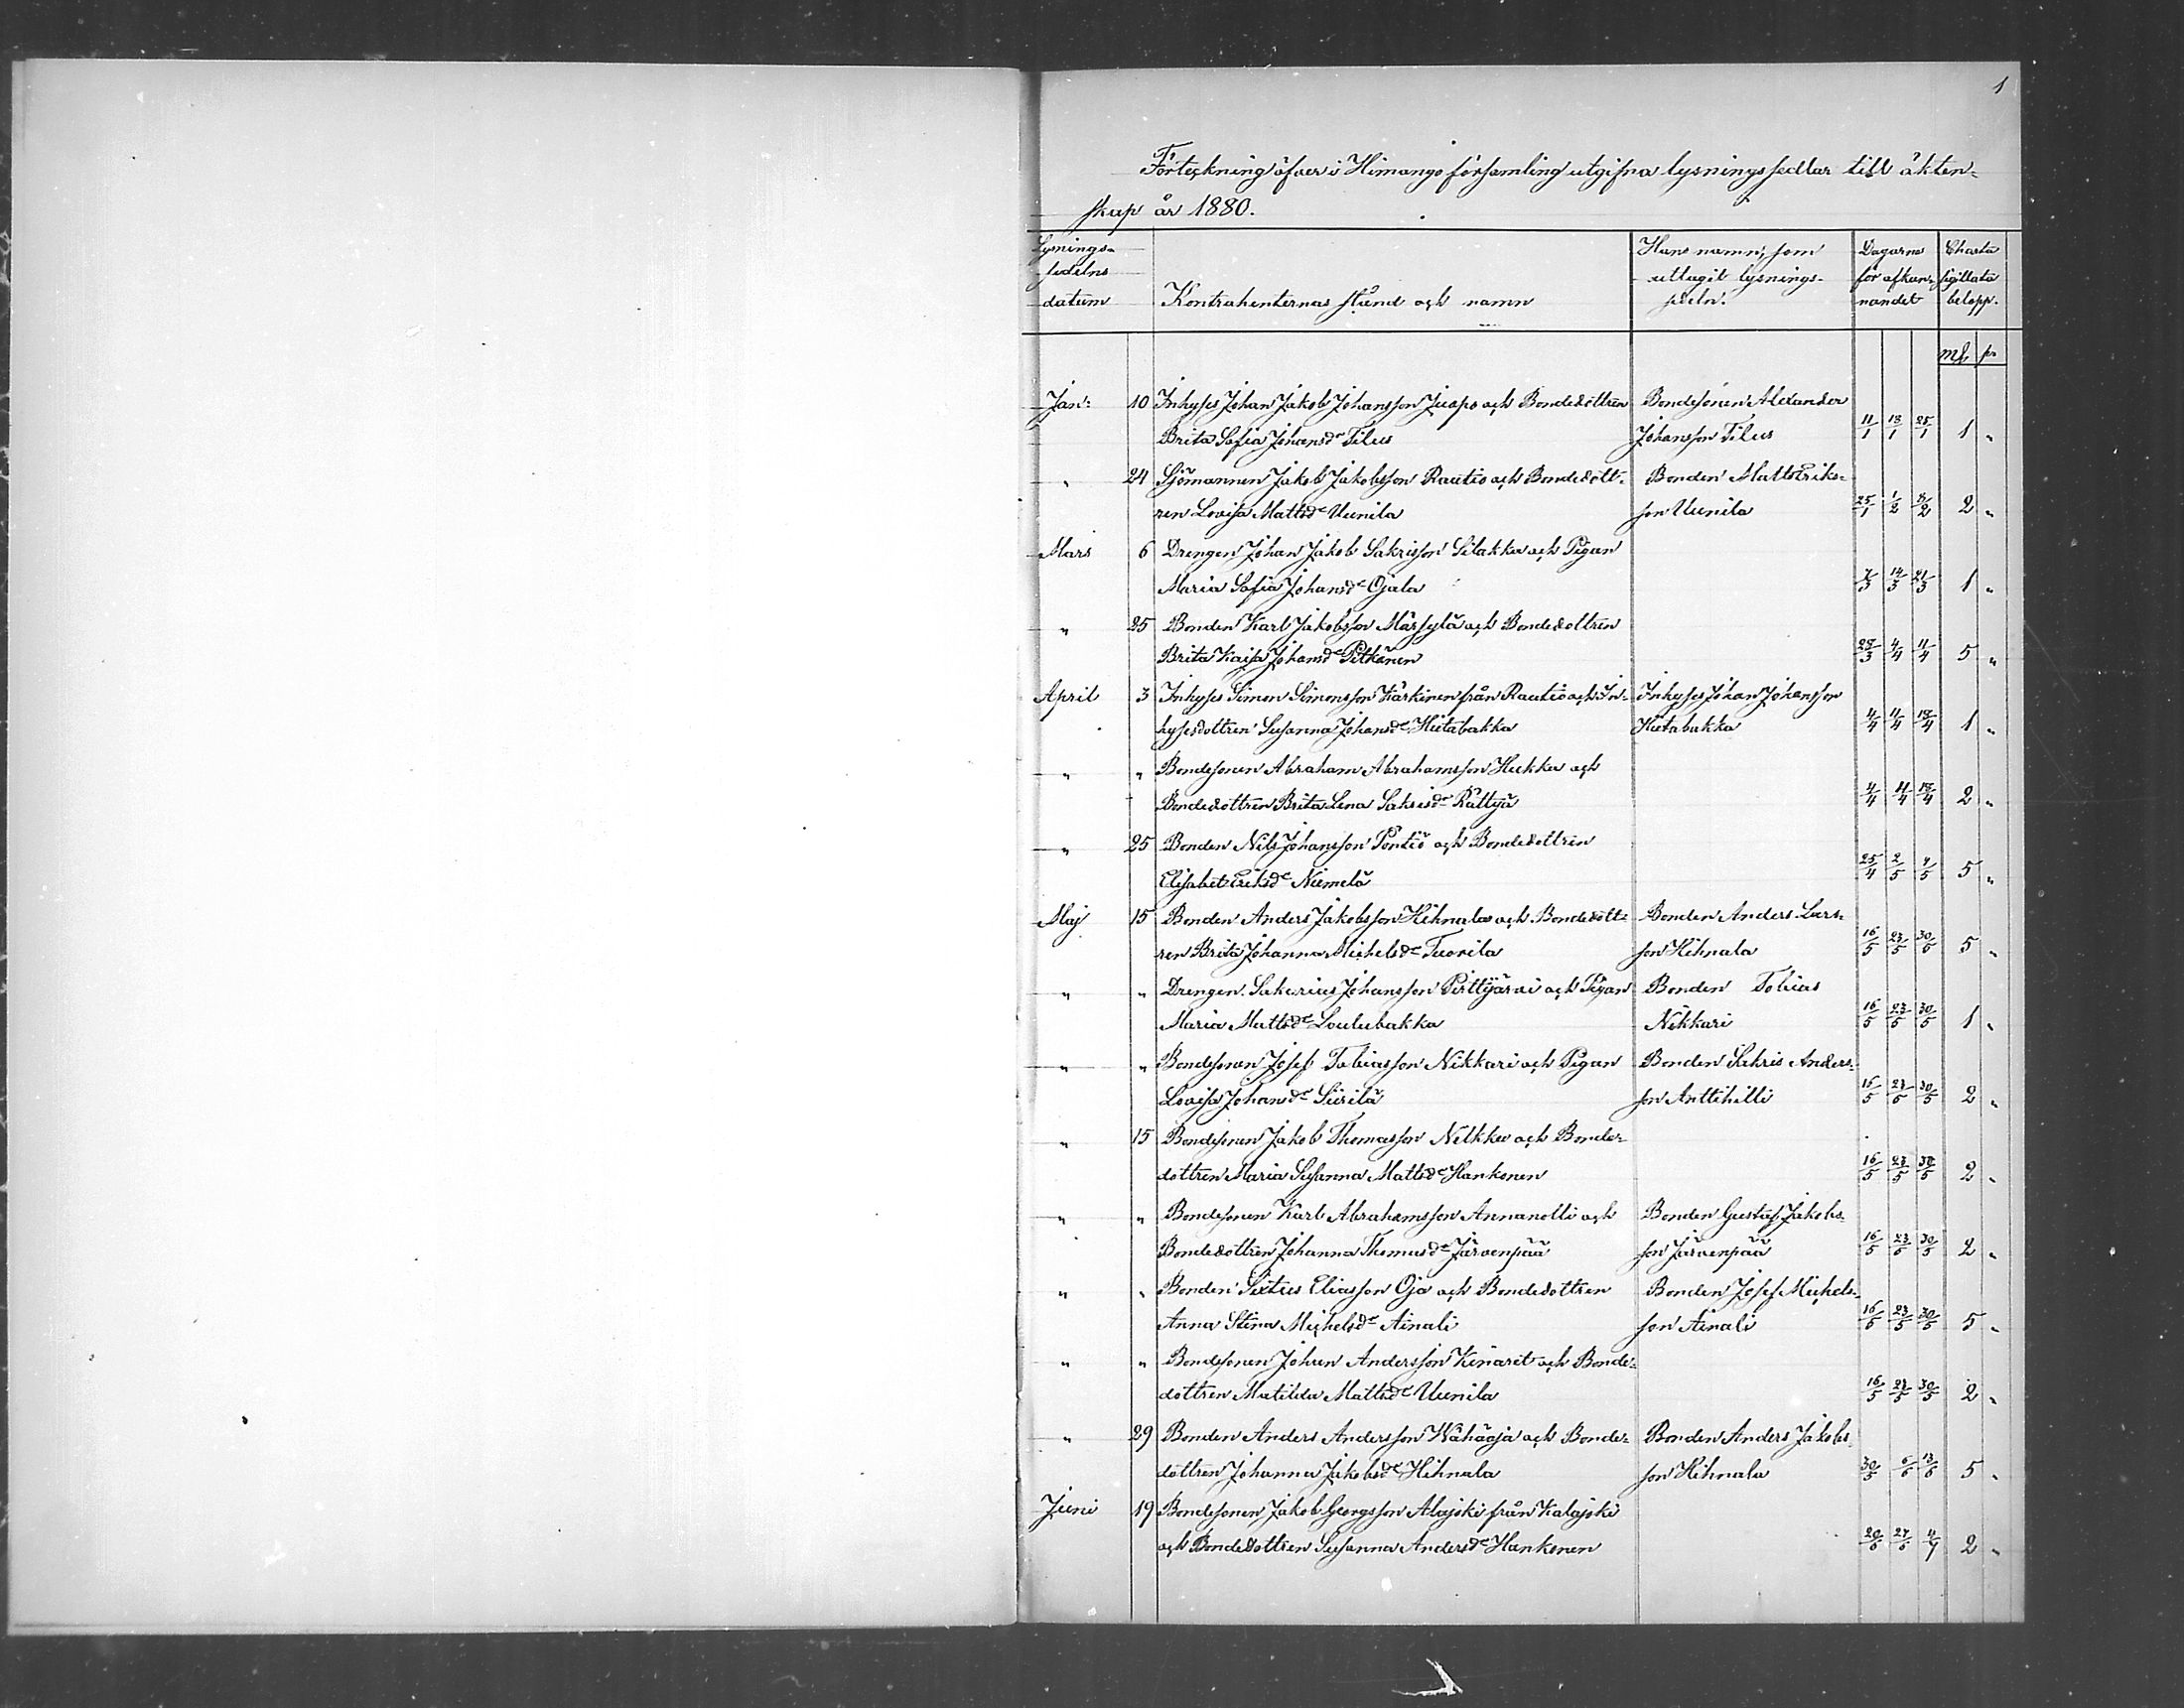 1
Förteckning öfver i Himango församling utgifna lysningssedlar till äkten-
skap år 1880.
Lysnings- sedelns datum | Kontrahenternas stånd och namn | Hans namn, som uttagit lysnings- sedeln. | Dagarne för afkun- nandet | Charta sigillata belopp.
mk | p
Jan: 10 Inhyses Johan Jakob Johansson Juopo och Bondedottren Bondesonen Alexander
Brita Sofia Johansdr Tilus Johansson Tilus 11/1 18/1 25/1 1 "
" 24 Sjömannen Jakob Jakobsson Rautio och Bondedott- Bonden Matts Eriks-
ren Lovisa Mattsdr Uunila son Uunila 25/1 1/2 8/2 2 "
Mars 6 Drengen Johan Jakob Sakrisson Silakka och Pigan
Maria Sofia Johansdr Ojala 7/3 14/3 21/3 1 "
" 25 Bonden Karl Jakobsson Märsylä och Bondedottren
Brita Kaisa Johansdr Pitkänen 28/3 4/4 11/4 5 "
April 3 Inhyses Simon Simonsson Kärkinen från Rautio och In- Inhyses Johan Johansson
hysesdottren Susanna Johansdr Hietabakka Hietabakka 4/4 11/4 18/4 1 "
" " Bondesonen Abraham Abrahamsson Hukka och
Bondedottren Brita Lena Sakrisdr Rättyä 4/4 11/4 18/4 2 "
" 25 Bonden Nils Johansson Pöntiö och Bondedottren
Elisabet Eriksdr Niemelä 25/4 2/5 9/5 5 "
Maj 15 Bonden Anders Jakobsson Hihnala och Bondedott- Bonden Anders Lars-
ren Brita Johanna Michelsdr Tuorila son Hihnala 16/5 23/5 30/5 5 "
" " Drengen Sakarias Johansson Pirttijärvi och Pigan Bonden Tobias
Maria Mattsdr Loulubakka Nikkari 16/5 23/5 30/5 1 "
" " Bondesonen Josef Tobiasson Nikkari och Pigan Bonden Sakris Anders-
Lovisa Johansdr Siirilä son Anttihilli 16/5 23/5 30/5 2 "
" 15 Bondesonen Jakob Thomasson Nelkka och Bonde-
dottren Maria Susanna Mattsdr Hankonen 16/5 23/5 30/5 2 "
" " Bondesonen Karl Abrahamsson Annanolli och Bonden Gustaf Jakobs-
Bondedottren Johanna Thomasdr Järvenpää son Järvenpää 16/5 23/5 30/5 2 "
" " Bonden Sixtus Eliasson Oja och Bondedottren Bonden Josef Michels-
Anna Stina Michelsdr Ainali son Ainali 16/5 23/5 30/5 5 "
" " Bondesonen Johan Andersson Kinaret och Bonde-
dottren Matilda Mattsdr Uunila 16/5 23/5 30/5 2 "
" 29 Bonden Anders Andersson Wähäoja och Bonde- Bonden Anders Jakobs
dottren Johanna Jakobsdr Hihnala son Hihnala 30/5 6/6 13/6 5 "
Juni 19 Bondesonen Jakob Georgsson Alajoki från Kalajoki
och Bondedottren Susanna Andersdr Hankonen 20/6 27/6 4/7 2 "